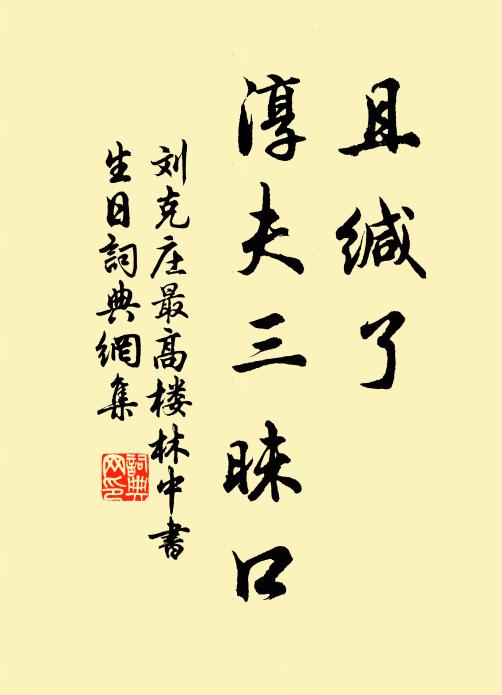 且缄了
淳夫三昧口
刘克庄最高楼林中書
生日詞典網集
詞典
网印